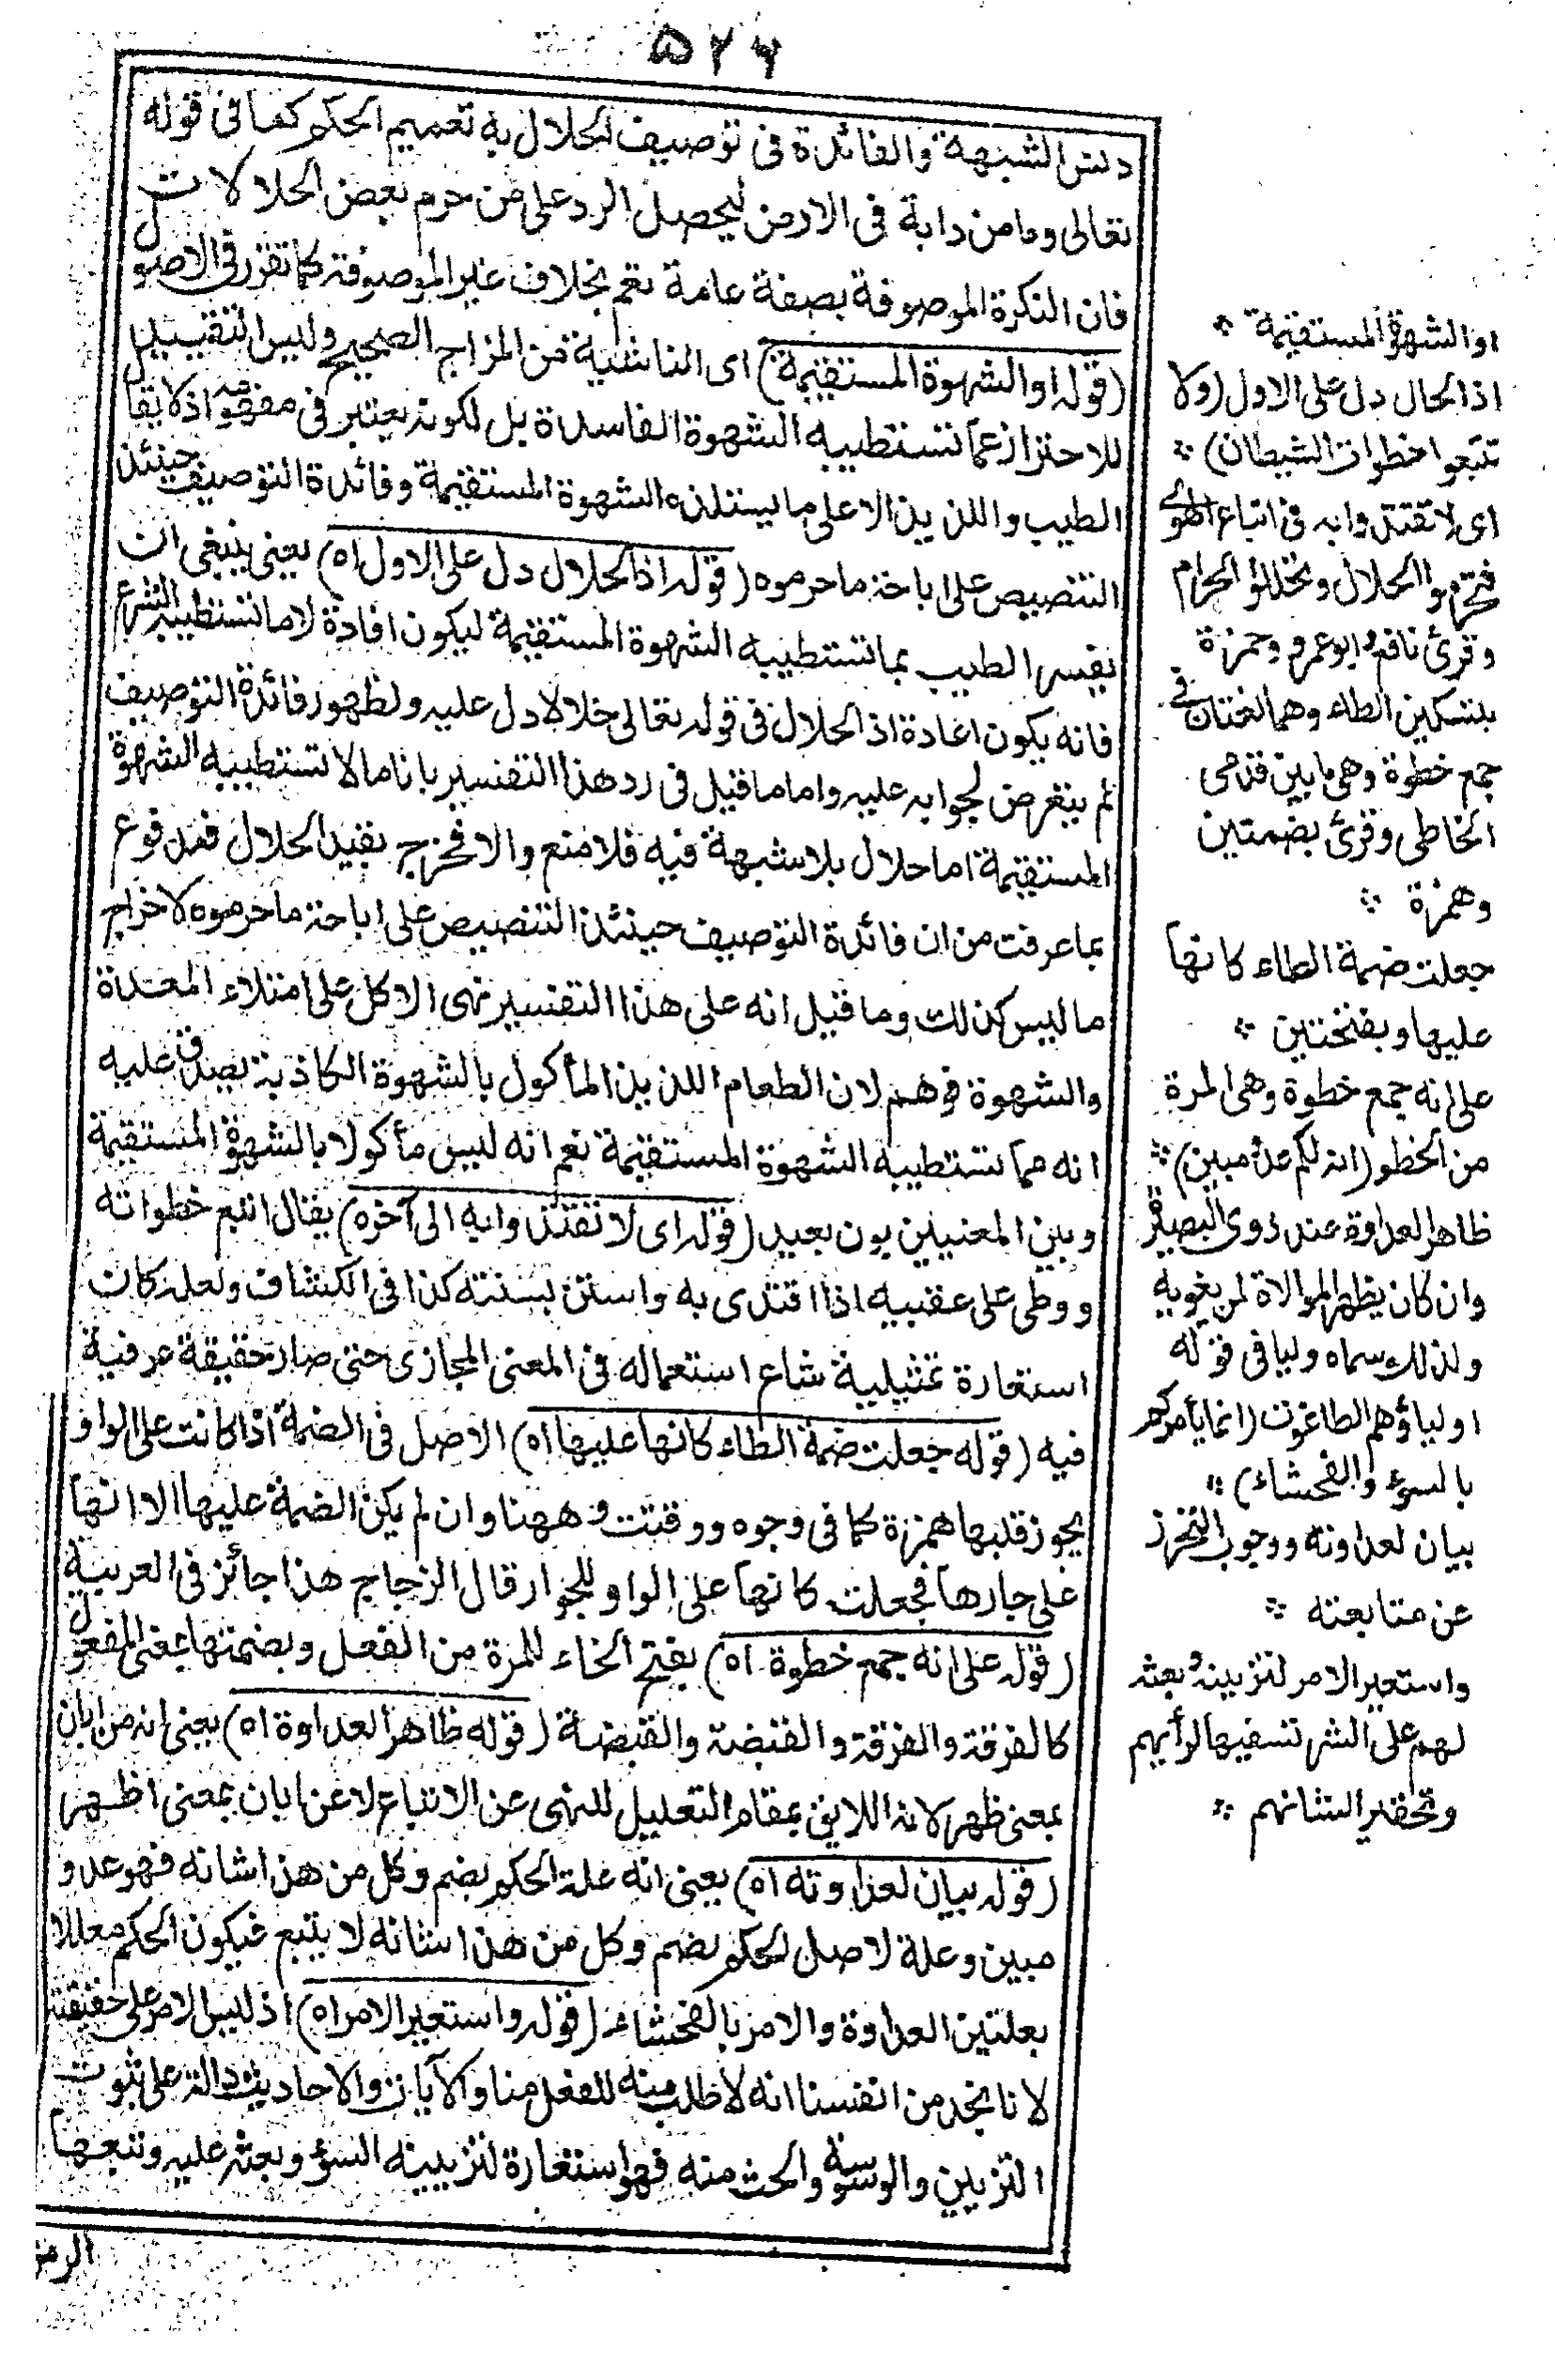 ٥٢٦
دنس الشبهة والفائدة فى توصيف الحلال به تعميم الحكم كما فى قوله
تعالى وما من دابة فى الارض ليحصل الرد على من حرم بعض الحلالات
فان النكرة الموصوفة بصفة عامة تعم بخلاف غير الموصوفة كما تقرر فى الاصول
(قوله او الشهوة المستقيمة) اى الناشئية من المزاج الصحيح وليس التقييد
للاحتراز عما تستطيبه الشهوة الفاسدة بل لكونه يعتبر فى مفهومه اذ لا يقال
الطيب واللذيذ الا على ما يستلذه الشهوة المستقيمة وفائدة التوصيف حينئذ
التنصيص على اباحة ما حرموه (قوله اذ الحلال دل على الاول اه) يعنى ينبغى ان
يفسر الطيب بما تستطيبه الشهوة المستقيمة ليكون افادة لا ما تستطيبه الشرع
فانه يكون اعادة اذ الحلال فى قوله تعالى حلالا دل عليه ولظهور فائدة التوصيف
لم يتعرض لجوابه عليه واما ما قيل فى رد هذا التفسير بانا ما لا تستطيبه الشهوة
المستقيمة اما حلال بلا شبهة فيه فلا منع والا فخرج بقيد الحلال فمدفوع
بما عرفت من ان فائدة التوصيف حينئذ التنصيص على اباحة ما حرموه لا خراج
ما ليس كذلك وما قيل انه على هذا التفسير نهى الاكل على امتلاء المعدة
والشهوة فوهم لان الطعام اللذيذ المأكول بالشهوة الكاذبة يصدق عليه
انه مما تستطيبه الشهوة المستقيمة نعم انه ليس مأكولا بالشهوة المستقيمة
وبين المعنيين بون بعيد (قوله اى لا تقتدوا به الى آخره) يقال اتبع خطواته
ووطى على عقبيه اذا اقتدى به واستن بسنته كذا فى الكشاف ولعله كان
استعارة تمثيلية شاع استعماله فى المعنى المجازى حتى صار حقيقة عرفية
فيه (قوله جعلت ضمة الطاء كانها عليها اه) الاصل فى الضمة اذا كانت على الواو
يجوز قلبها همزة كما فى وجوه ووقتت وههنا وان لم يكن الضمة عليها الا انها
على جارها فجعلت كانها على الواو للجوار قال الزجاج هذا جائز فى العربية
(قوله على انه جمع خطوة اه) بفتح الخاء للمرة من الفعل وبضمتها بمعنى المفعول
كالفرقة والفرقة والقبضة والقبضة (قوله ظاهر العداوة اه) يعنى انه من ابان
بمعنى ظهر لانه اللايق بمقام التعليل للنهى عن الاتباع لا عن ابان بمعنى اظهر
(قوله بيان لعداوته اه) يعنى انه علة الحكم بضم وكل من هذا شانه فهو عدو
مبين وعلة لاصل الحكم بضم وكل من هذا شانه لا يتبع فيكون الحكم معللا
بعلتين العداوة والامر بالفحشاء (قوله واستعير الامر اه) اذ ليس الامر على حقيقته
لانا نجد من انفسنا انه لا طلب منه للفعل منا والآيات والاحاديث دالة على ثبوت
التزيين والوسوسة والحث منه فهو استعارة لتزيينه السؤ وبعثه عليه وتتبعها
الرمز
او الشهوة المستقيمة
اذ الحال دل على الاول (ولا
تتبعوا خطوات الشيطان)
اى لا تقتدوا به فى اتباع الهوى
فتحرموا الحلال وتحللوا الحرام
وقرئ نافع وابو عمرو وحمزة
بتسكين الطاء وهما لغتان فى
جمع خطوة وهى ما بين قدمى
الخاطى وقرئ بضمتين
وهمزة
جعلت ضمة الطاء كانها
عليها وبفتحتين
على انه جمع خطوة وهى المرة
من الخطو (انه لكم عدو مبين)
ظاهر العداوة عند ذوى البصيرة
وان كان يظهر الموالاة لمن يغويه
ولذلك سماه وليا فى قوله
اولياؤهم الطاغوت (انما يأمركم
بالسوء والفحشاء)
بيان لعداوته ووجوب التحرز
عن متابعته
واستعير الامر لتزيينه وبعثه
لهم على الشر تسفيها لرأيهم
وتحقيرا لشانهم